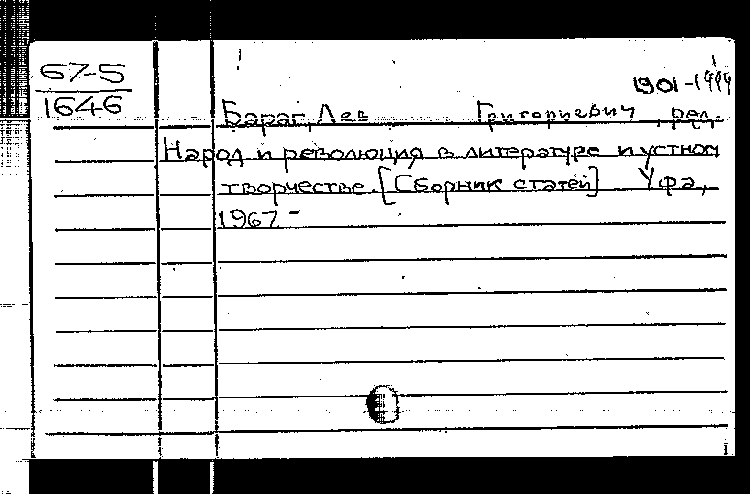 67-5
1646
1901-1994
Бараг, Лев Григориевич, ред.
Народ и революция в литературе и устном
творчестве. [Сборник статей] Уфа,
1967-